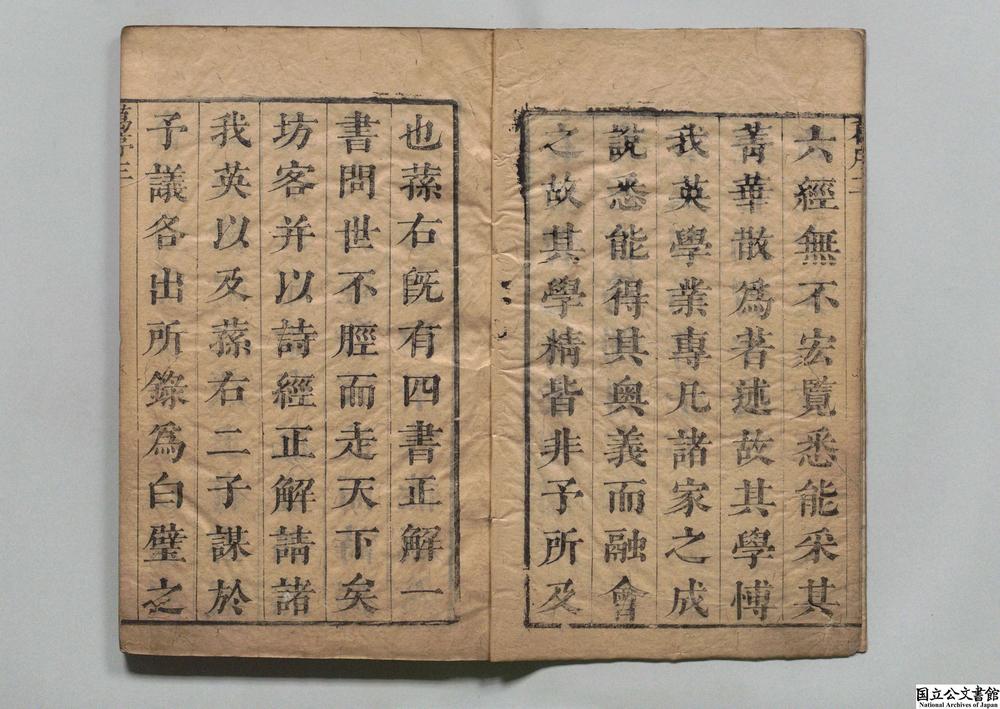 六經無不宏覽悉能采其
菁華散為者述故其學愽
我英學業專凡諸家之成
說悉能得其奥義而融會
之故其學精皆非予所及
也蓀右旣有四書正解一
書問世不脛而走天下矣
坊客并以詩經正解請諸
我英以及蓀右二子謀於
予議各出所錄為白璧之
国立公文書館
National Archives of Japan